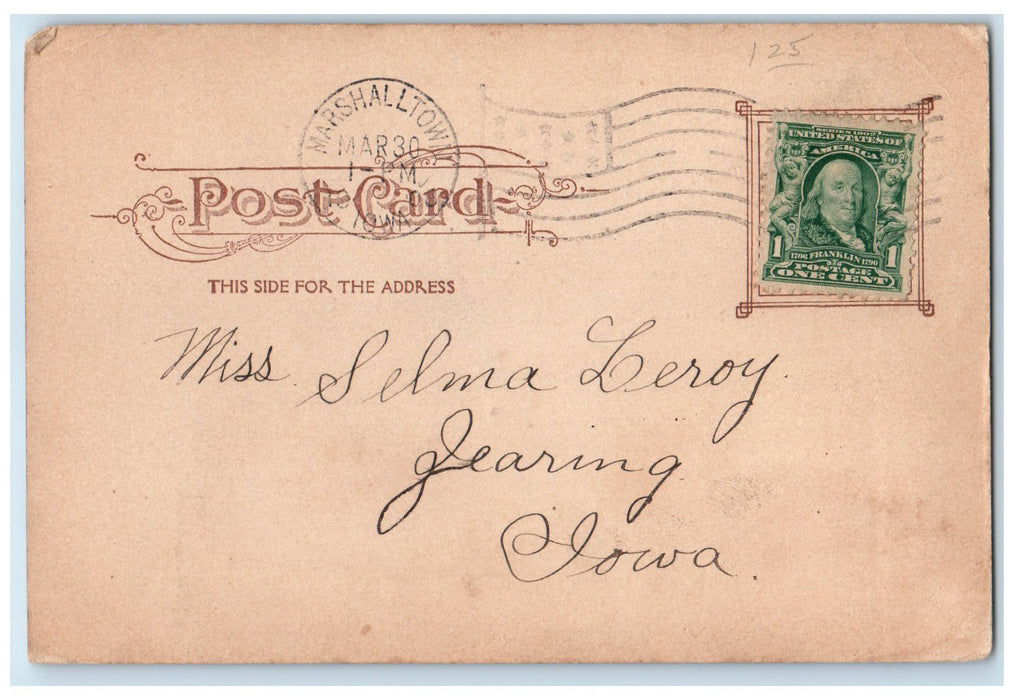 125
MARSHALLTOWN
MAR 30
1 - PM
IOWA
SERIES 1902
UNITED STATES OF
AMERICA
Post Card
1706 FRANKLIN 1790
1 POSTAGE 1
ONE CENT
THIS SIDE FOR THE ADDRESS
Miss. Selma Leroy.
Jearing
Iowa.